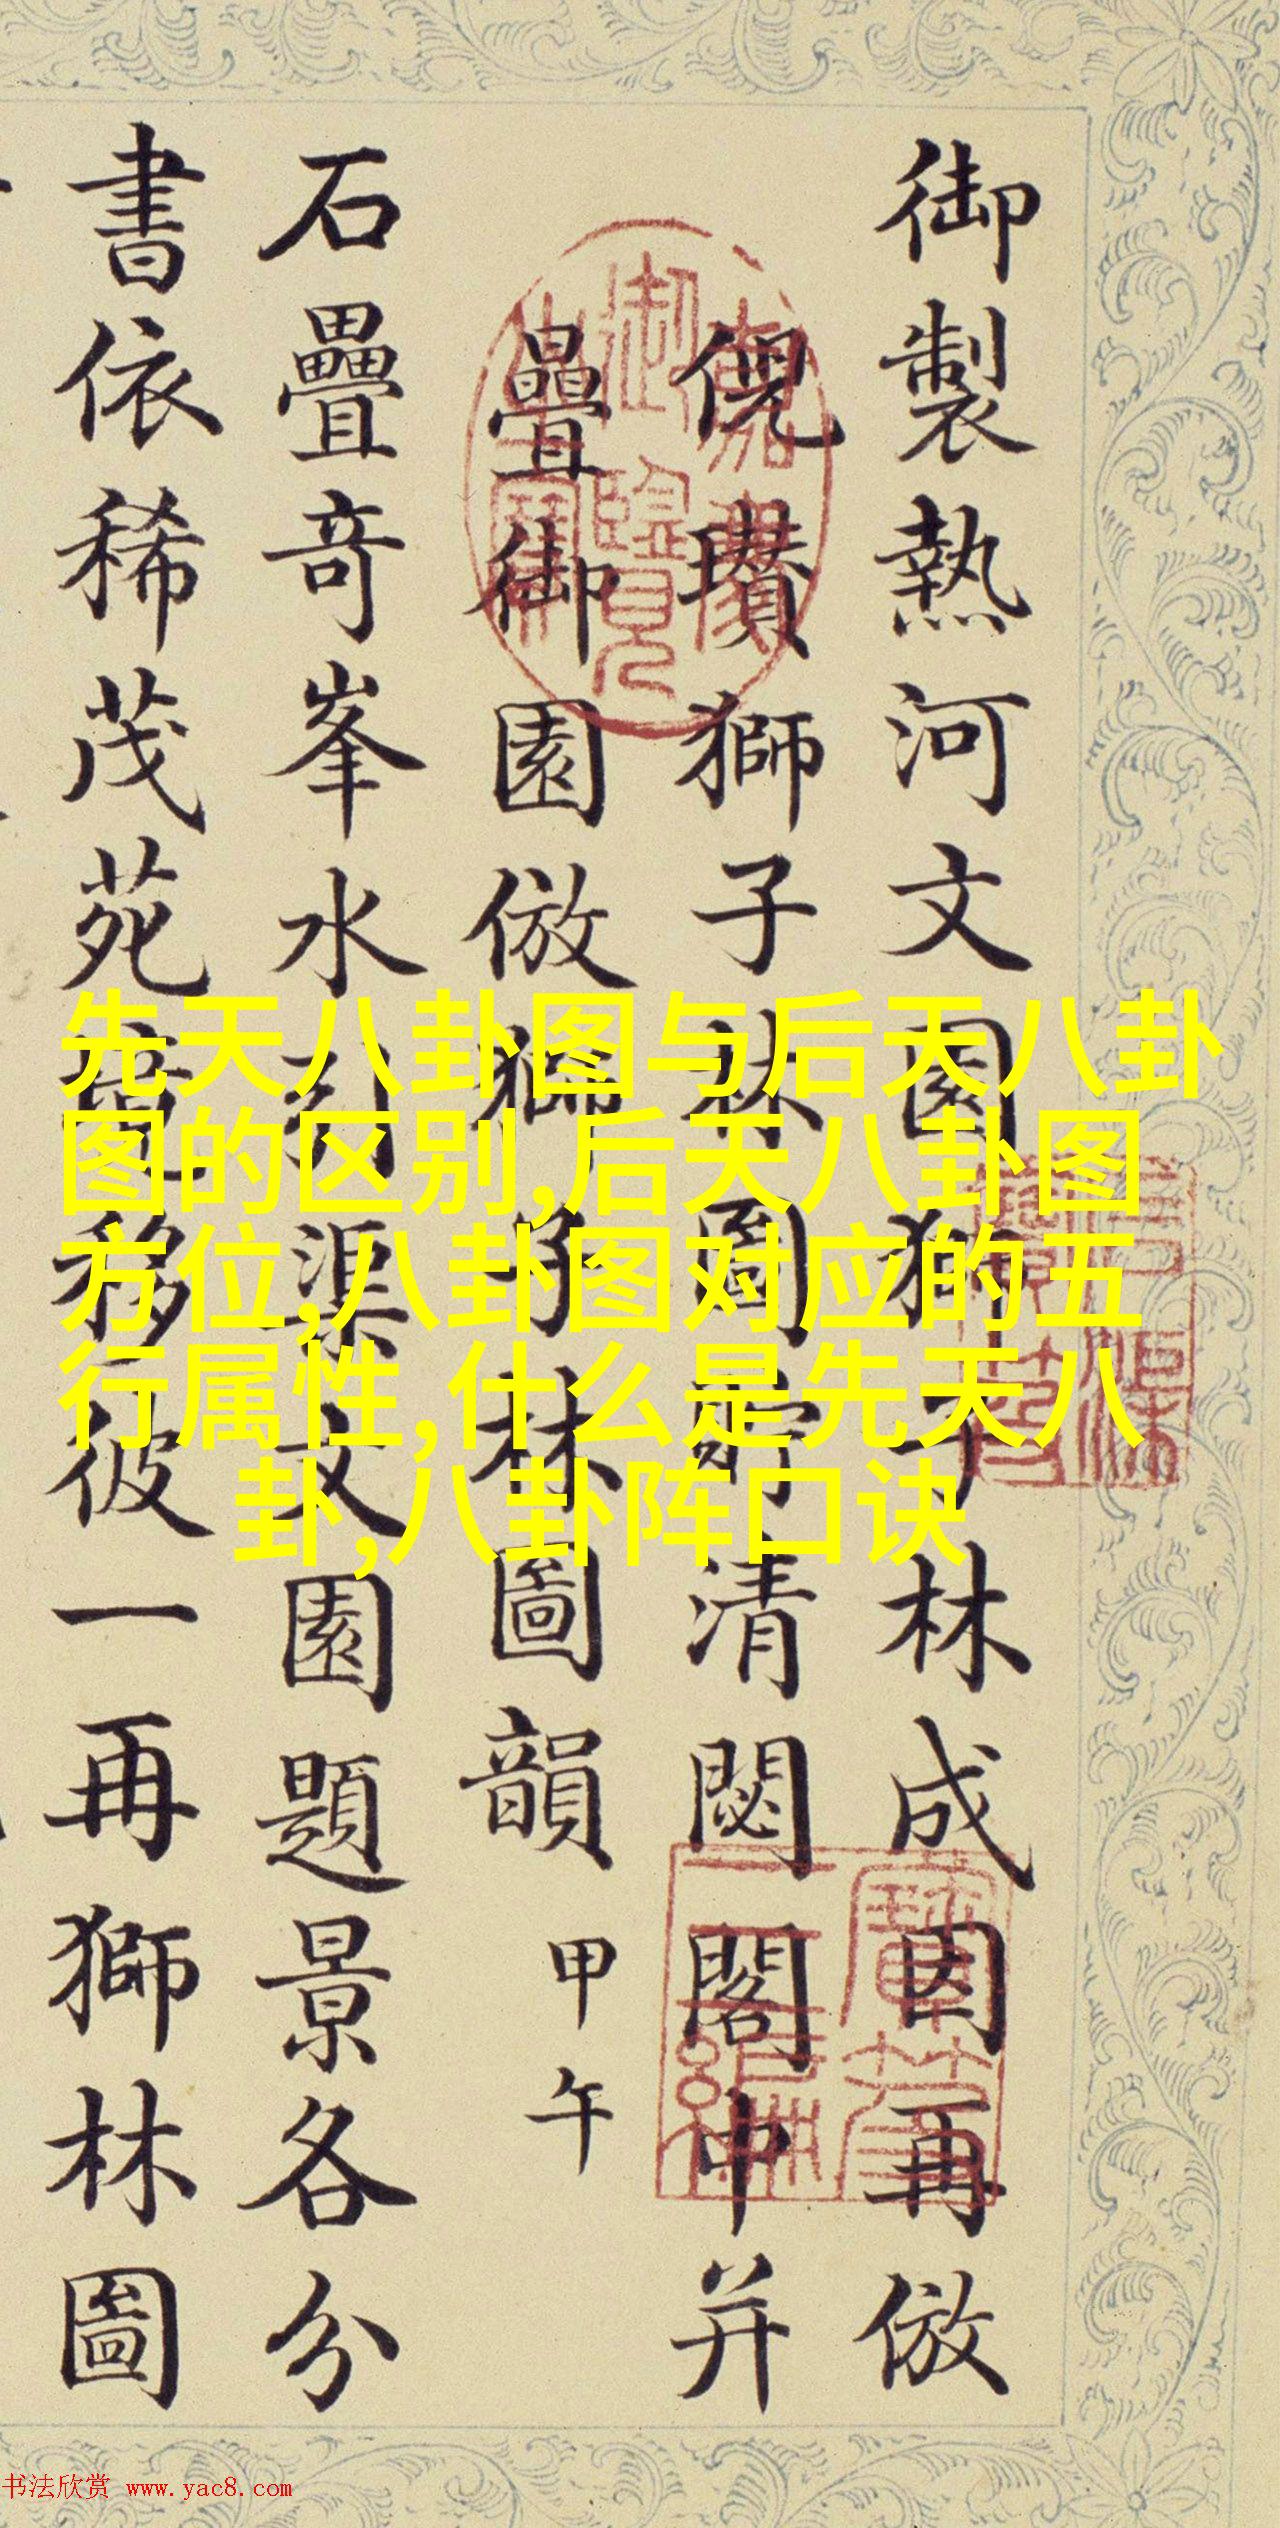 御製熱河文園獅子林成因再倣
倪瓚獅子林圖貯清閟閣中并
疊御園倣獅子林圖韻 甲午
石疊奇峯水引渠文園題景各分
書依稀茂苑竟移彼一再獅林圖
先天八卦图与后天八卦
图的区别,后天八卦图
方位,八卦图对应的五
行属性,什么是先天八
卦,八卦阵口诀
书法欣赏 www.yac8.com